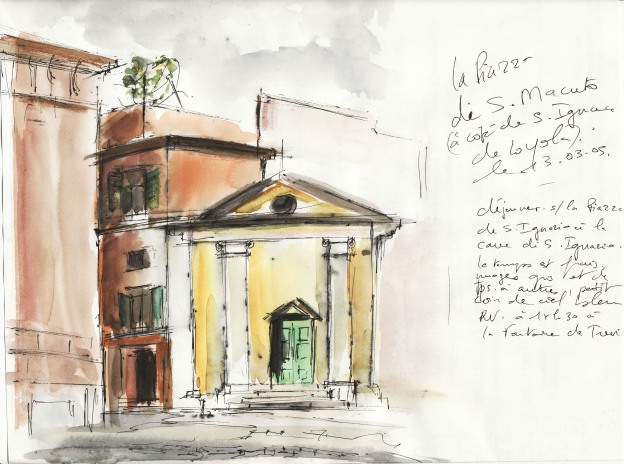 la Piazza
di S. Macuto
(à côté de S. Ignace
de Loyola).
le 13.03.05.
déjeuner s/ la Piazza
de S. Ignazio à la
cave di S. Ignazio.
le temps est frais,
nuages gris et de
tps. à autres, petit
coin de ciel bleu
RV. à 14h30 à
la Fontaine de Trevi